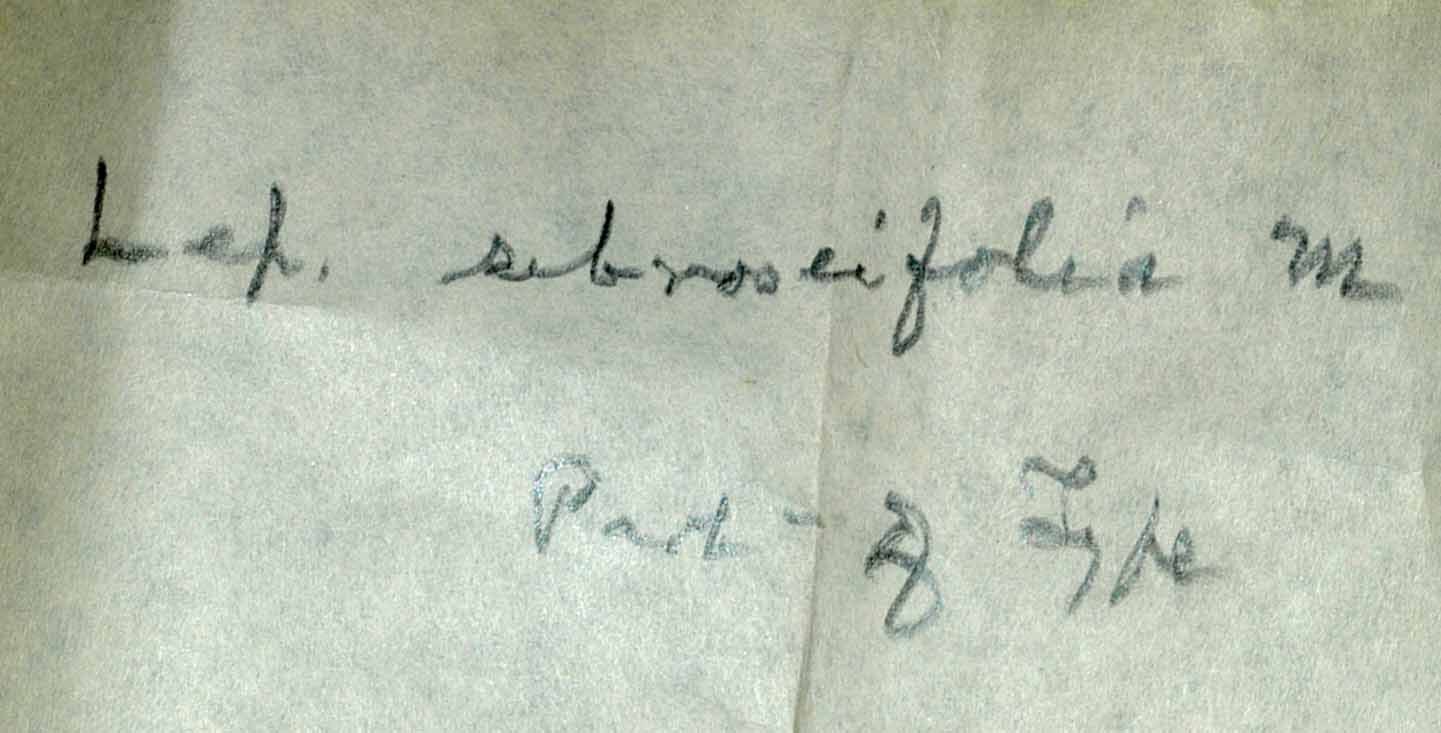 Lep. subroseifolia M
Part of Type